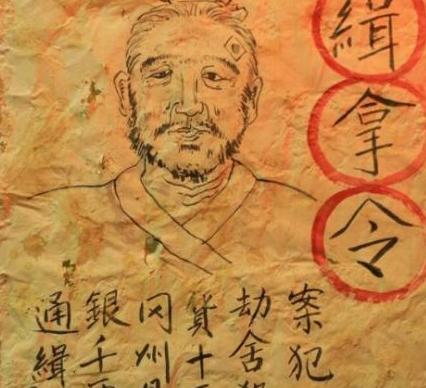 緝拿令
案犯
劫舍
貨十
冈州
銀千
通緝